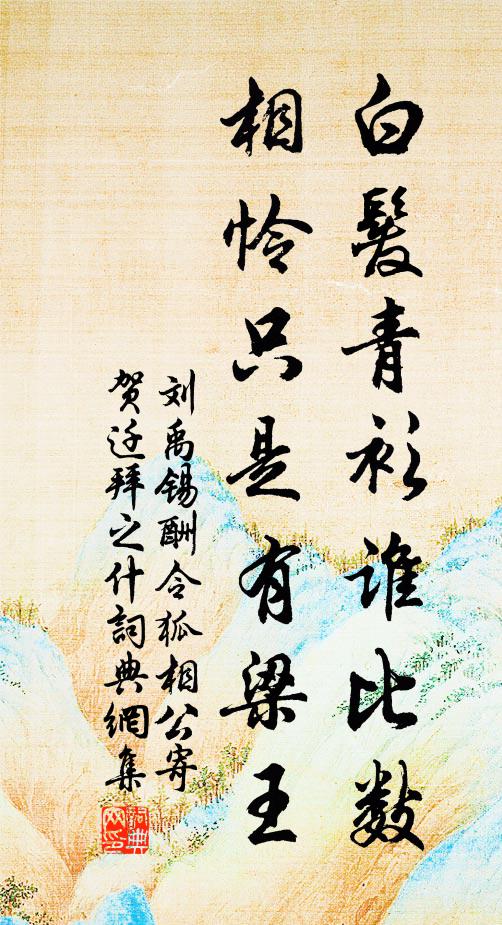 白髮青衫谁比数
相怜只是有梁王
刘禹锡酬令狐相公寄
贺迁拜之什詞典網集
詞典
网印